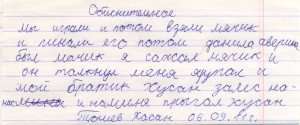 Обиснительное
Мы играли и потом взяли мячик
и пинали его потом данила аверина
был мачик я сажал мячик и
он толкнул меня я упал и
мой братик хусан залес на
нас и намня прыгол хусан
Тошев Хасан 06.09.11г.